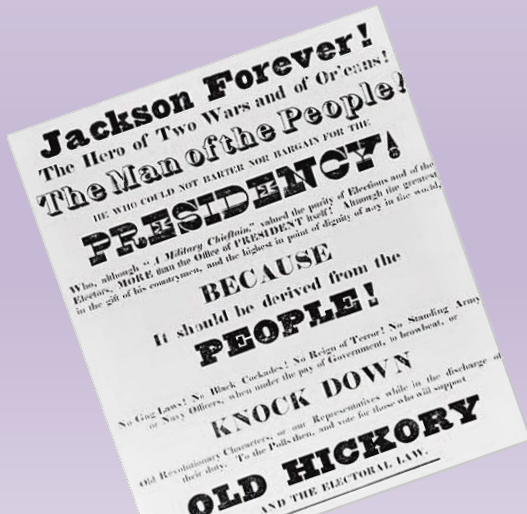 Jackson Forever!
The Hero of Two Wars and of Or'eans!
The Man of the People!
HE WHO COULD NOT BARTER NOR BARGAIN FOR THE
PRESIDENCY!
Who, although "A Military Chieftain," valued the purity of Elections and of the
Electors, MORE than the Office of PRESIDENT itself! Although the greatest
in the gift of his countrymen, and the highest in point of dignity of any in the world,
BECAUSE
It should be derived from the
PEOPLE!
No Gag Laws! No Black Cockades! No Reign of Terror! No Standing Army
or Navy Officers, when under the pay of Government, to browbeat, or
KNOCK DOWN
Old Revolutionary Characters, or our Representatives while in the discharge of
their duty. To the Polls then, and vote for those who will support
OLD HICKORY
AND THE ELECTORAL LAW.